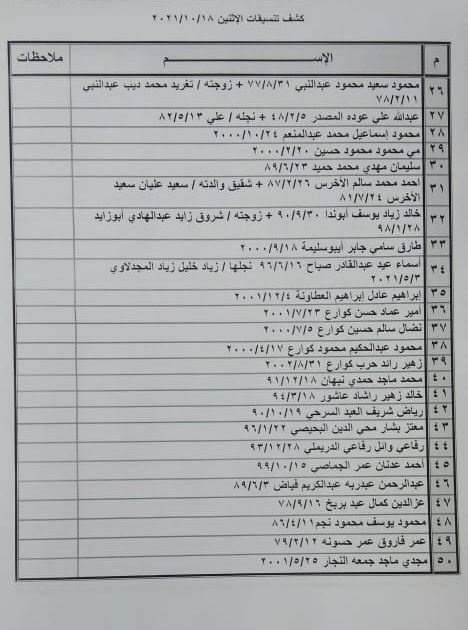 كشف تنسيقات الإثنين ٢٠٢١/١٠/١٨
م الإســـــــم ملاحظات
٢٦ محمود سعيد محمود عبدالنبي ٧٧/٨/٣١ + زوجته / تغريد محمد ديب عبدالنبي
٧٨/٢/١١
٢٧ عبدالله علي عوده المصدر ٤٨/٢/٥ + نجله / علي ٨٢/٥/١٣
٢٨ محمود إسماعيل محمد عبدالمنعم ٢٠٠٠/١٠/٢٤
٢٩ مي محمود محمود حسين ٢٠٠٠/٢/٢٠
٣٠ سليمان مهدي محمد حميد ٨٩/٦/٢٣
٣١ احمد محمد سالم الأخرس ٨٧/٢/٢٦ + شقيق والدته / سعيد عليان سعيد
الأخرس ٨١/٧/٢٤
٣٢ خالد زياد يوسف أبوندا ٩٠/٩/٣٠ + زوجته / شروق زايد عبدالهادي أبوزايد
٩٨/١/٢٨
٣٣ طارق سامي جابر أبيوسليمة ٢٠٠٠/٩/١٨
٣٤ أسماء عيد عبدالقادر صباح ٩٦/٦/١٦ نجلها / زياد خليل زياد المجدلاوي
٢٠٢١/٥/٣
٣٥ إبراهيم عادل إبراهيم العطاونة ٢٠٠١/١٢/٤
٣٦ أمير عماد حسن كوارع ٢٠٠١/٧/٢٣
٣٧ نضال سالم حسين كوارع ٢٠٠٠/٧/٥
٣٨ محمود عبدالحكيم محمود كوارع ٢٠٠٠/٤/١٧
٣٩ زهير رائد حرب كوارع ٢٠٠٢/٨/٣١
٤٠ محمد ماجد حمدي نبهان ٩١/١٢/١٨
٤١ خالد زهير راشاد عاشور ٩٤/٣/١٨
٤٢ رياض شريف العبد السرحي ٩٠/١٠/١٩
٤٣ معتز بشار محي الدين البحيصي ٩٦/١/٢٢
٤٤ رفاعي وائل رفاعي الدريملي ٩٣/١٢/٢٨
٤٥ احمد عدنان عمر الجماصي ٩٩/١٠/١٥
٤٦ عبدالرحمن عبدربه عبدالكريم فياض ٨٩/٦/٣
٤٧ عزالدين كمال عبد بريخ ٧٨/٩/١٦
٤٨ محمود يوسف محمود نجم ٨٦/٤/١١
٤٩ عمر فاروق عمر حسونه ٧٩/٢/١٢
٥٠ مجدي ماجد جمعه النجار ٢٠٠١/٥/٢٥